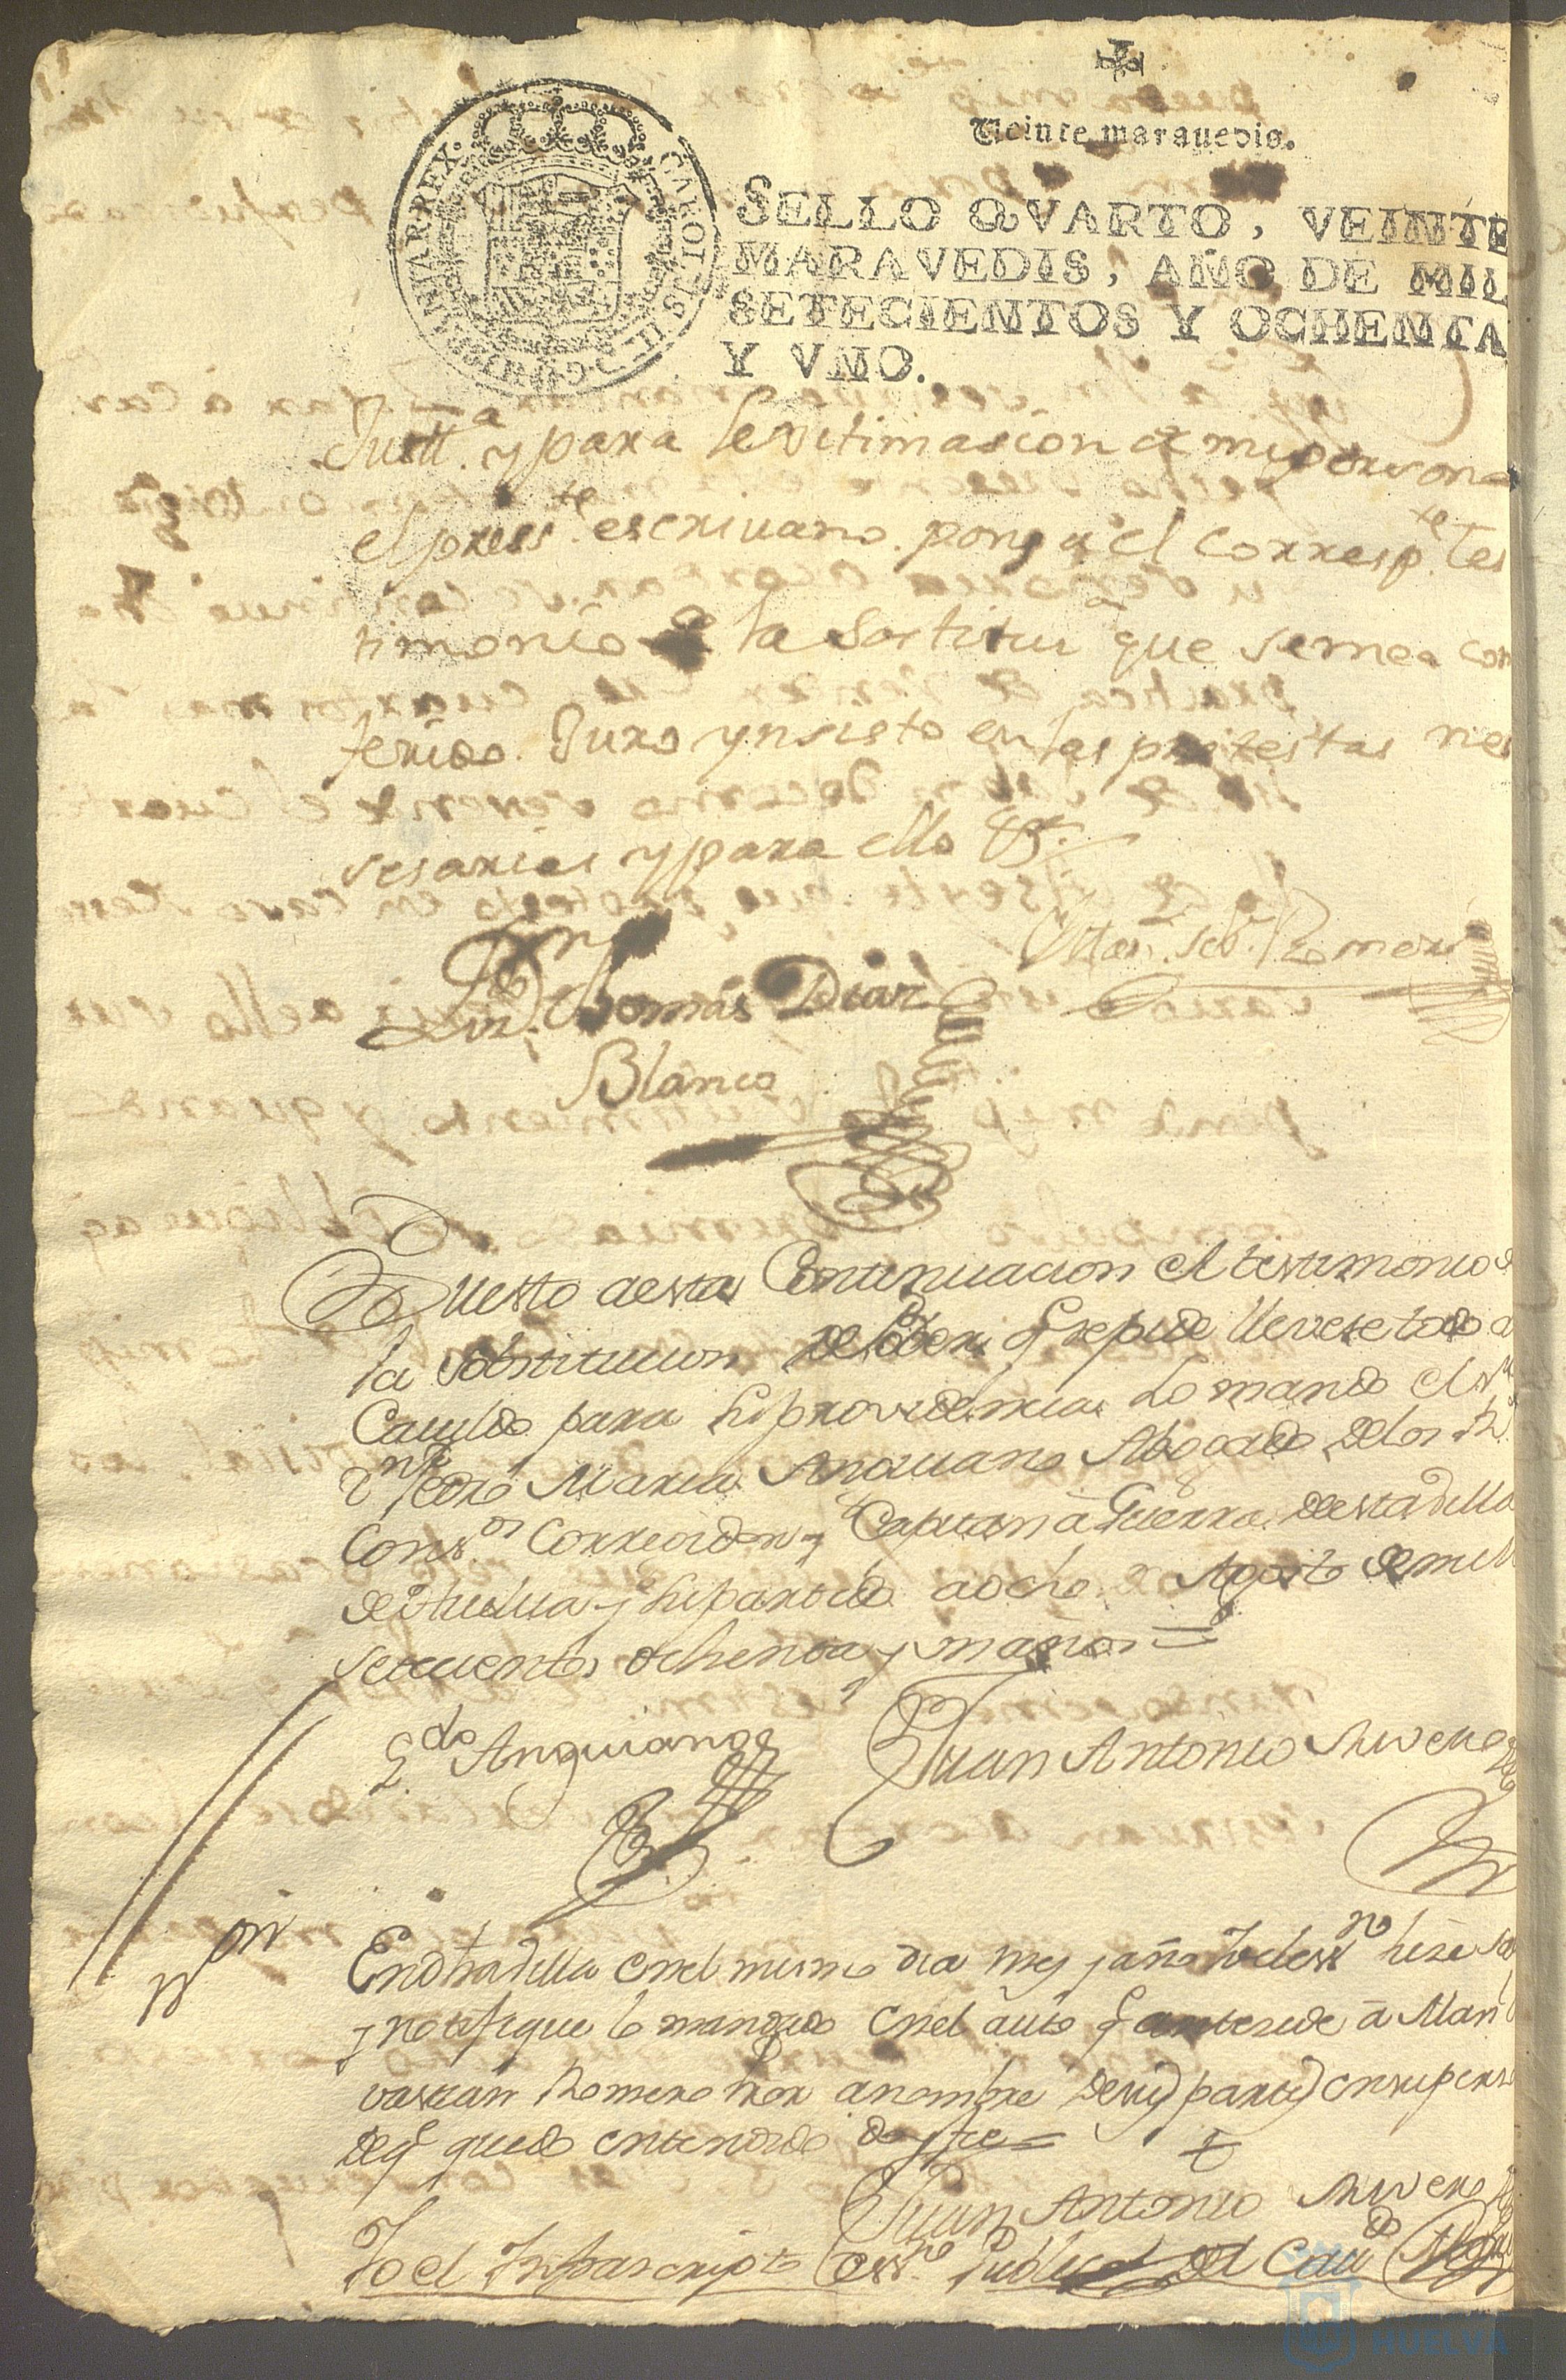 Veinte maravedis.
SELLO QVARTO, VEINTE
MARAVEDIS, AÑO DE MIL
SETECIENTOS Y OCHENTA
Y VNO.
CAROLUS III D G HISPANIAR REX
Justt.a y para lexitimasion de mi persona
el press.te escrivano ponga el corresp.te tes
timonio de la sostitu.n que seme a con
ferido. Juro ynsisto en las protestas ne
sesarias y para ello &.
Liz.do Thomás Diaz
Blanco
Man. Seb.n Romero
Puesto aesta Continuacion el testimonio de
la sobstitucion de Poder q.e se pide llevese todo a
Cavildo para su providencia Lo mando el S.r
D.n Pedro Maria Anguiano Abogado de los R.s
Cons.os Correxidor y Capitan â Guerra de esta villa
de Huelva y su partido a ocho de Agosto de mill
setecientos ochenta y un años =
L.do Anguiano
Juan Antonio Rivera
N.on
En dha villa en el mismo dia mes y año Yo el ess.no hise sa
y notifique lo mandado en el auto q.e antesede â Man.l
vastian Romero Pror a nombre de sus partes en su perso
de q.e quedo entendido doy fee =
Juan Antonio Rivera
Yo el Infrascripto Ess.no Publico del Cav.do
HUELVA